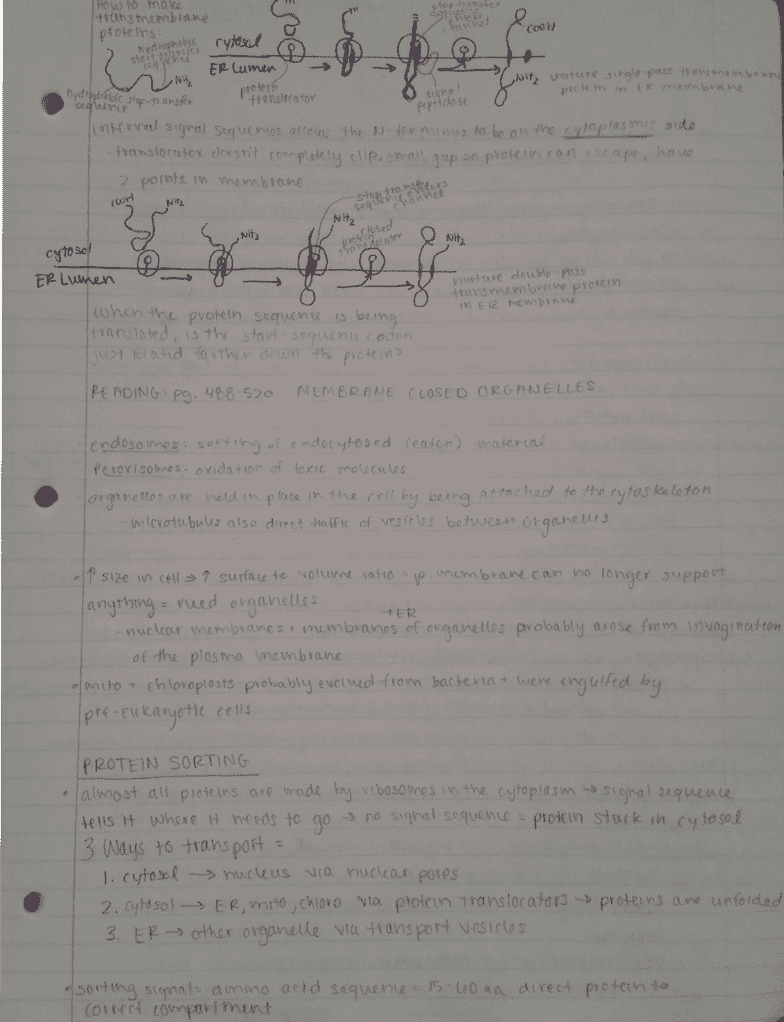 How to make
transmembrane
proteins.
hydrophobic
start-transfer
sequence
NH₂
hydrophobic stop-transfer
sequence
cytosol
ER Lumen
protein
translocator
stop transfer
channel
signal
peptidase
COOH
NH₂
mature single-pass transmembrane
protein in ER membrane
internal signal sequences allows the N-terminus to be on the cytoplasmic side
-translocator doesn't completely clip, small gap so protein can escape, have
2 points in membrane
COOH
NH₂
NH₂
stop transfer
sequence enters
channel
NH₂
closed
protein
translocator
NH₂
cytosol
ER Lumen
mature double-pass
transmembrane protein
in ER membrane
when the protein sequence is being
translated, is the start sequence codon
just located farther down the protein?
READING: pg. 488-520 MEMBRANE CLOSED ORGANELLES
endosomes: sorting of endocytosed (eaten) material
Peroxisomes: oxidation of toxic molecules
organelles are held in place in the cell by being attached to the cytoskeleton
- microtubules also direct traffic of vesicles between organelles
• ↑ size in cell → ↑ surface to volume ratio - p. membrane can no longer support
anything = need organelles
+ER
- nuclear membranes + membranes of organelles probably arose from invagination
of the plasma membrane
• mito + chloroplasts probably evolved from bacteria + were engulfed by
pre-eukaryotic cells
PROTEIN SORTING
• almost all proteins are made by ribosomes in the cytoplasm → signal sequence
tells it where it needs to go → no signal sequence = protein stuck in cytosol
3 Ways to transport =
1. cytosol → nucleus via nuclear pores
2. cytosol → ER, mito, chloro via protein translocators → proteins are unfolded
3. ER → other organelle via transport vesicles
• sorting signal = amino acid sequence - 15-60 aa direct protein to
correct compartment